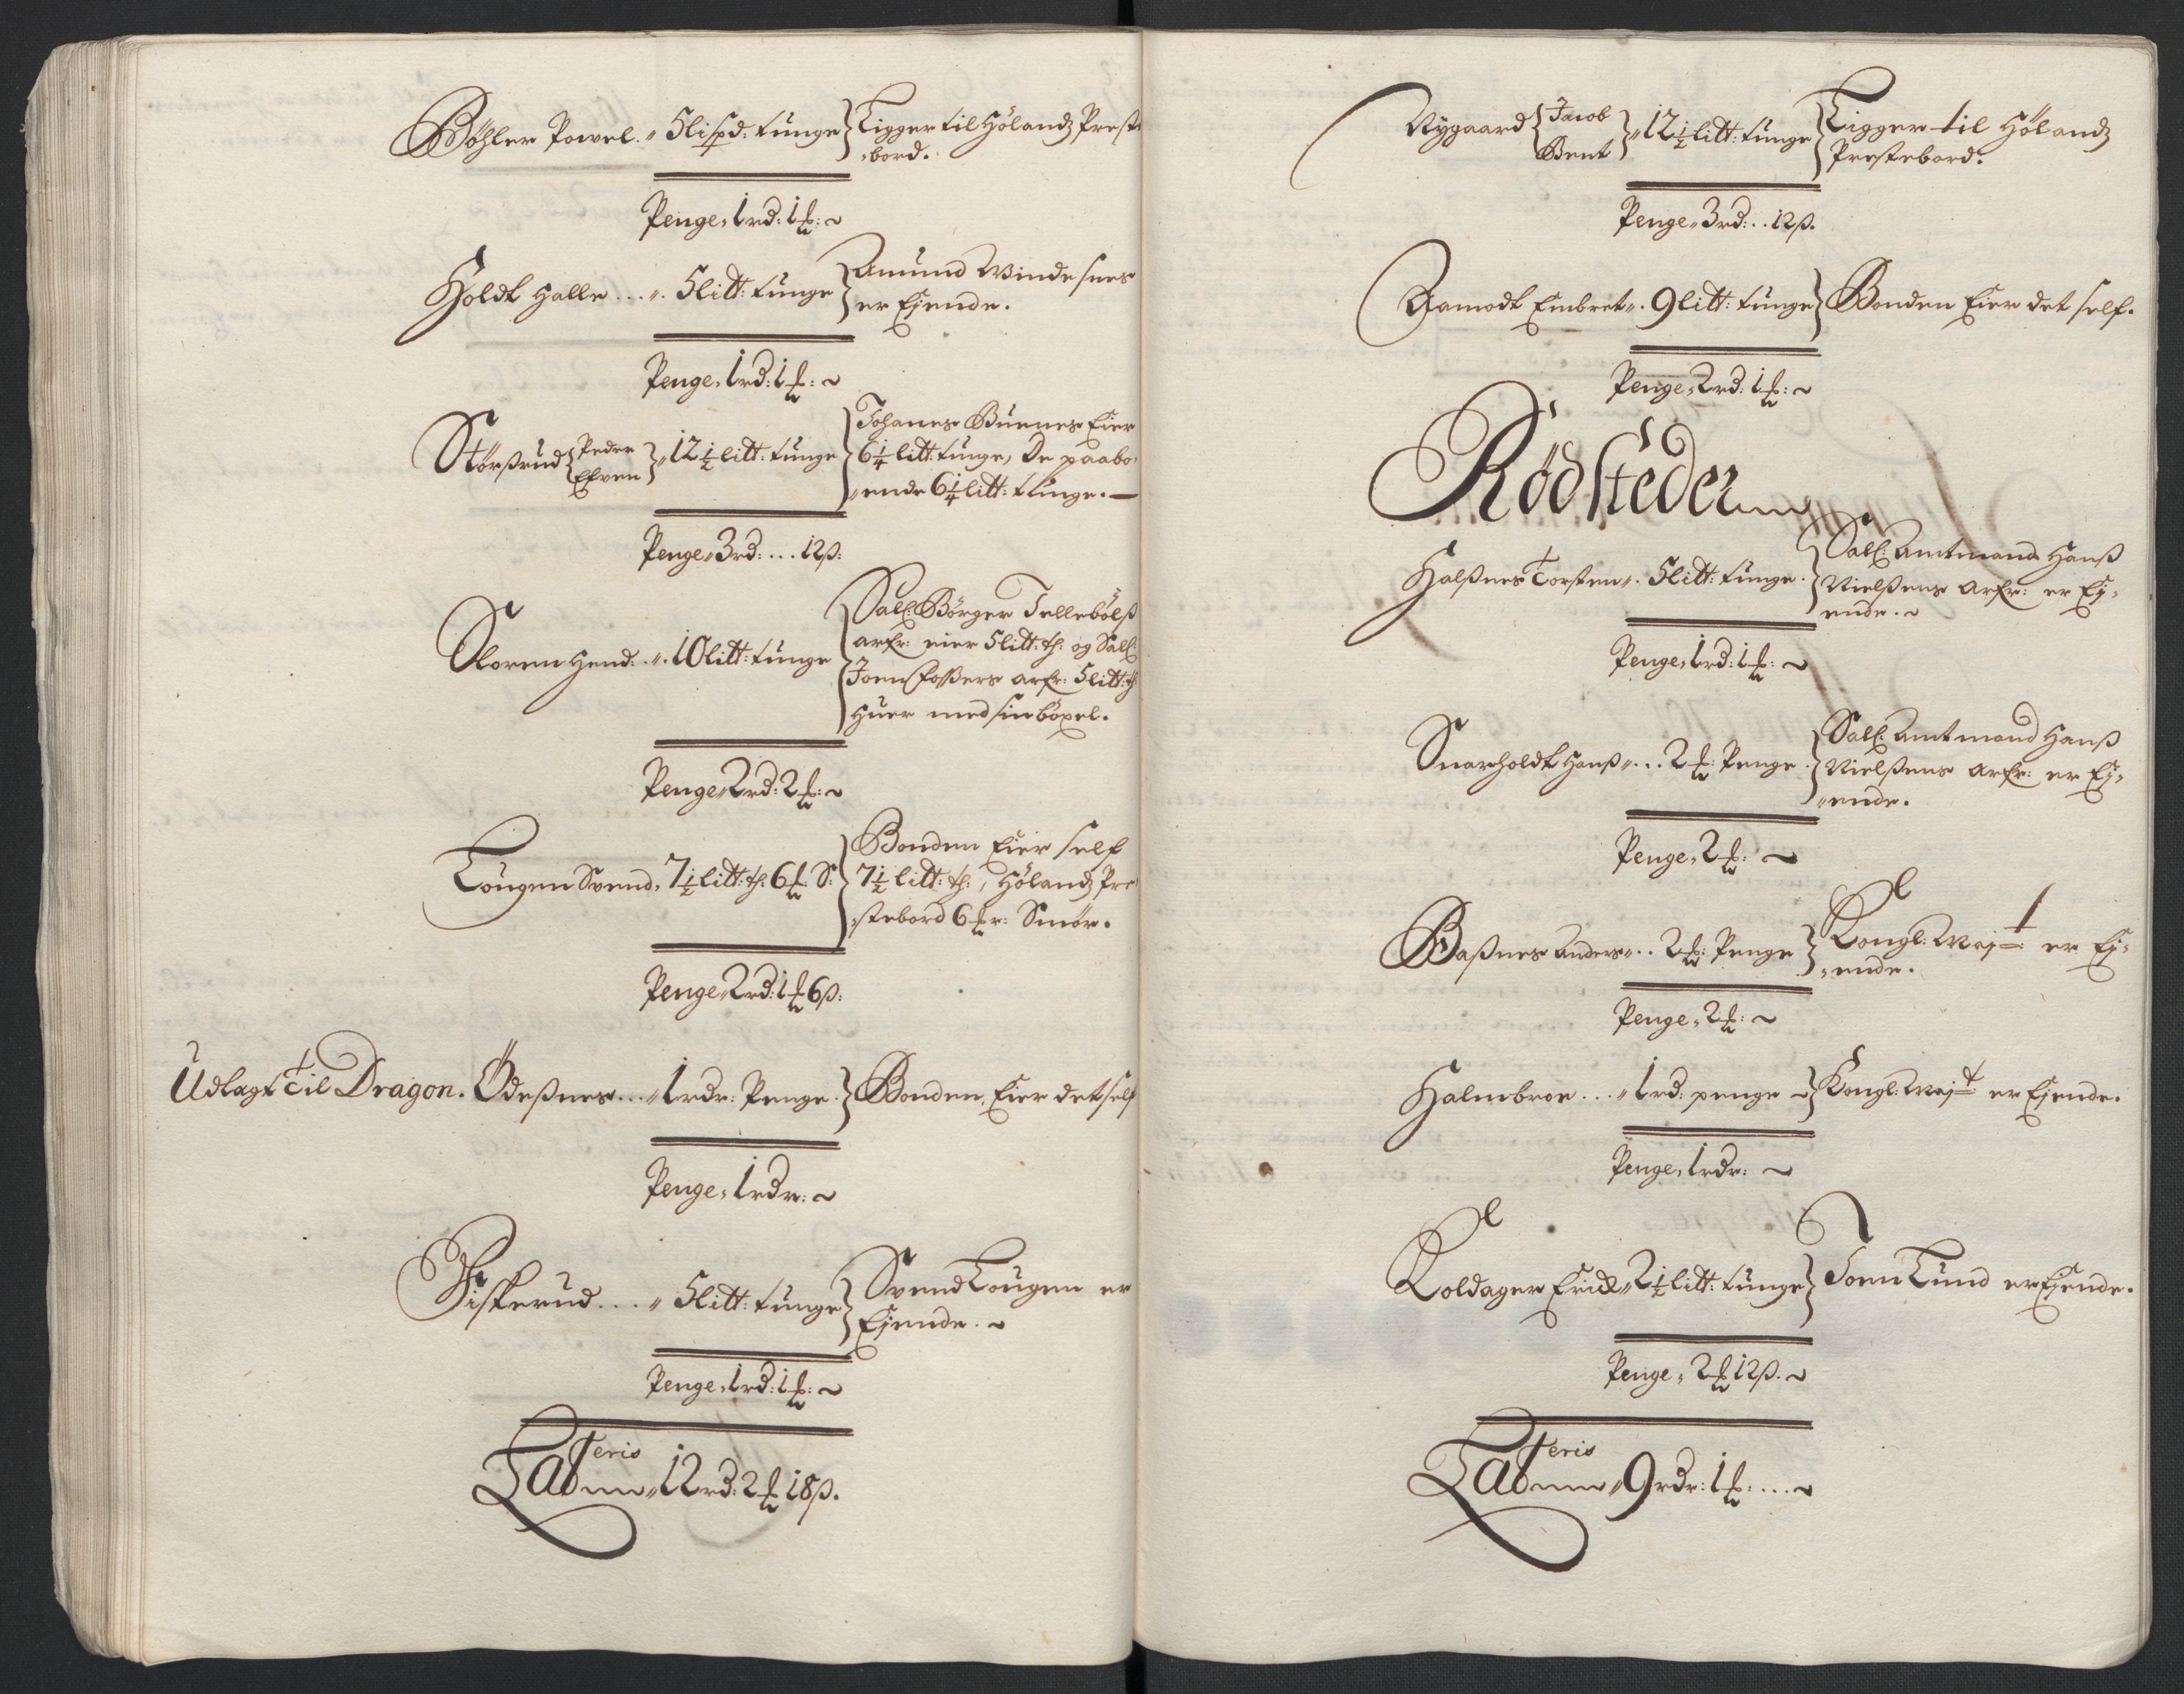 Bøhler Powel. „ 5 lispd: tunge } Ligger til Hølandz Preste
„bord.
Penge, 1 rd: 1 f: ~
Holdt Halle ... „. 5 litt: tunge } Amund Windesnes
er Ejende.
Penge, 1 rd: 1 f: ~
Størßrud { Peder Efven } „ 12 1/2 litt: tunge { Johanes Buenes Eier
6 1/4 litt: tunge, De paabo„
„ende 6 1/4 litt: tunge. —
Penge „ 3 rd: ... 12 ß:
Sloren Hend: .„. 10 litt: tunge { Sall: Børger Tellebølß
arfr: eier 5 litt: th: og Sall:
Joen Foßers arfr: 5 litt: th
Huer med sin böxel.
Penge „ 2 rd: 2 f: ~
Lougen Svend, 7 1/2 litt: th: 6 f: S: { Bonden Eier self
7 1/2 litt: th:, Hølandz Pre
„stebord 6 fr: Smör.
Penge „ 2 rd: 1 f 6 ß:
Udlagt til Dragon. Ödeßnes ... „ 1 rdr: Penge. } Bonden Eier det self
Penge, 1 rdr: ~
Fiskerud .... „ 5 litt: tunge } Svend Lougen er
Ejende. ~
Penge, 1 rd: 1 f: ~
Lateris „ 12 rd: 2 f 18 ß.
Nygaard { Jacob Bent } „ 12 1/2 litt: tunge { Ligger til Hölandz
Prestebord.
Penge „ 3 rd: .. 12 ß.
Aamodt Embret „. 9 litt: tunge } Bonden Eier det self.
Penge, 2 rd: 1 f: ~
Rödsteder
Halßnes Torsten „. 5 litt: tunge. { Sall: Amtmand Hanß
Nielßens Arfr: er Ej„
ende. ~
Penge, 1 rd: 1 f: ~
Snarholdt Hanß „... 2 f: Penge. { Sall: Amtmand Hanß
Nielßens Arfr: er Ej„
„ende.
Penge, 2 f: ~
Baßnes Anders „.. 2 f: Penge } Kongl: Majt: er Ej„
„ende.
Penge, 2 f: ~
Halmbroe ... „ 1 rd: penge ~ } Kongl: Majt: er Ejende.
Penge, 1 rdr: ~
Koldager Erick „ 2 1/2 litt: tunge } Joen Lund er Ejende.
Penge, 2 f 12 ß. ~
Lateris „ 9 rdr: 1 f: .... ~